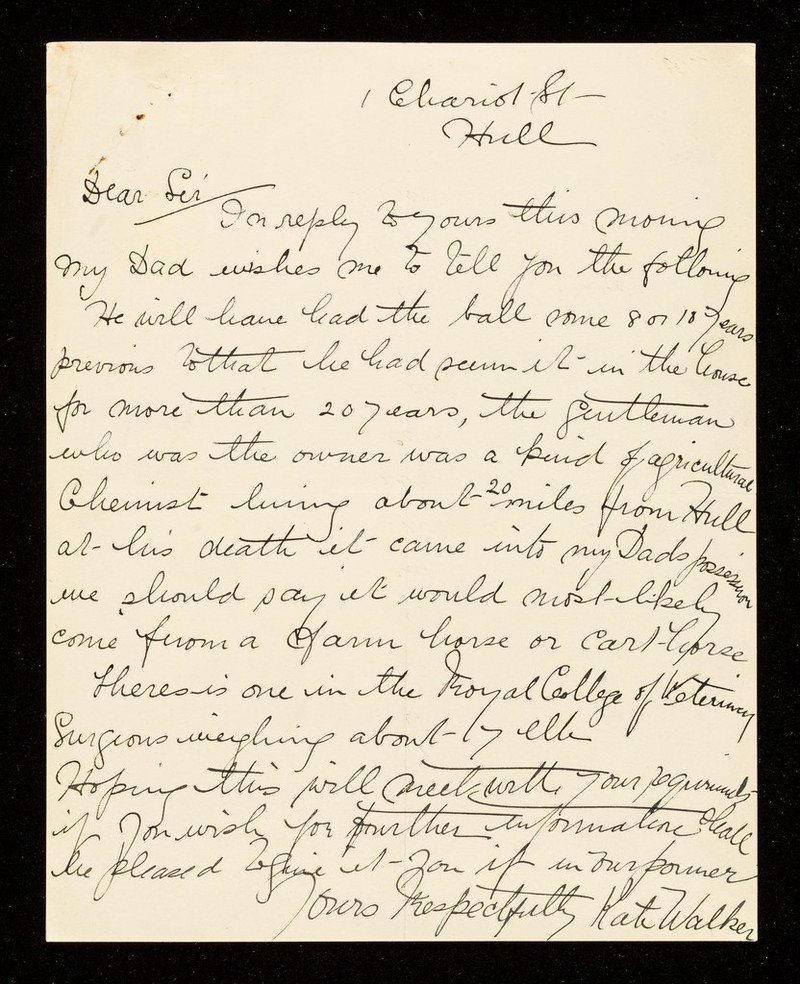 1 Chariot St
Hull
Dear Sir
In reply to yours this moning
my Dad wishes me to tell you the following
He will have had the ball some 8 or 10 years
previous to that he had seen it in the house
for more than 20 years, the gentleman
who was the owner was a kind of agricultural
Chemist living about 20 miles from Hull
at his death it came into my Dads possession
we should say it would most likely
come from a farm horse or cart-horse
Theres is one in the Royal College of Veterinary
Surgeons weighing about 17 lbs
Hoping this will meet with your requirments
if you wish for further information shall
be pleased to give it you if in our power
Yours Respectfully Kate Walker